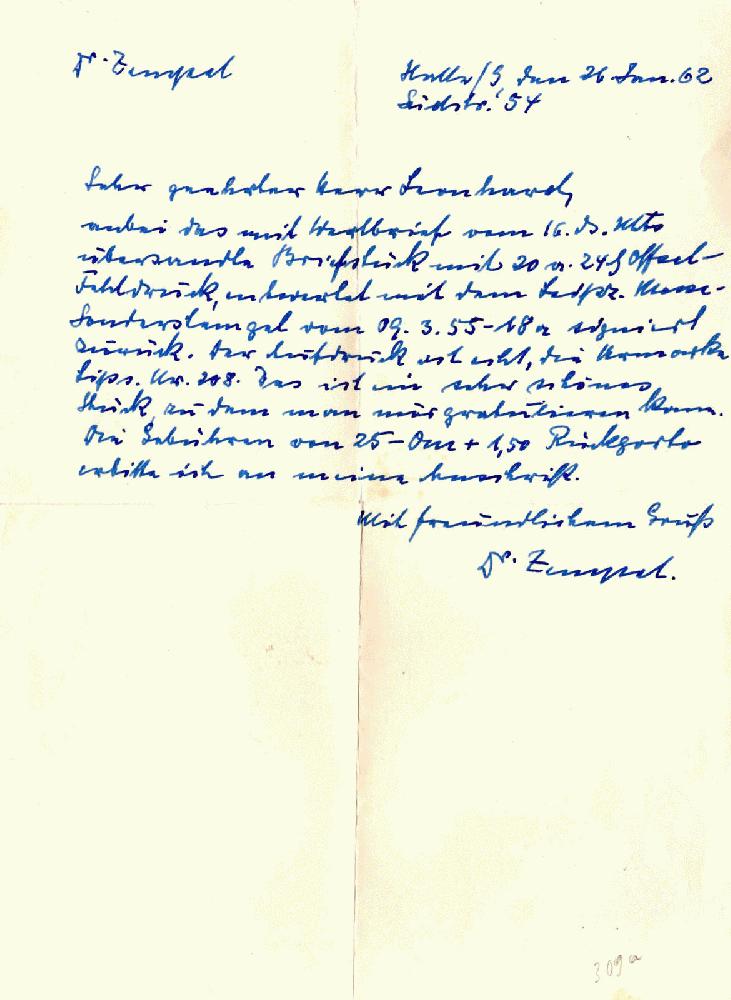 Dr. Zempel
Halle/S, den 26 Jan. 62
Südstr. 54
Sehr geehrter Herr Leonhard,
anbei das mit Wertbrief vom 16. ds. Mts
übersandte Briefstück mit 20 a. 24 Offset-
Fehldruck, entwertet mit dem Leipz. Messe-
Sonderstempel vom 09. 3. 55-18 a signiert
zurück. Der Aufdruck ist echt, die Urmarke
Lips. Nr. 208. Das ist ein sehr schönes
Stück, zu dem man nur gratulieren kann.
Die Gebühren von 25- Dm + 1,50 Rückporto
erbitte ich an meine Anschrift.
Mit freundlichem Gruß
Dr. Zempel.
309a